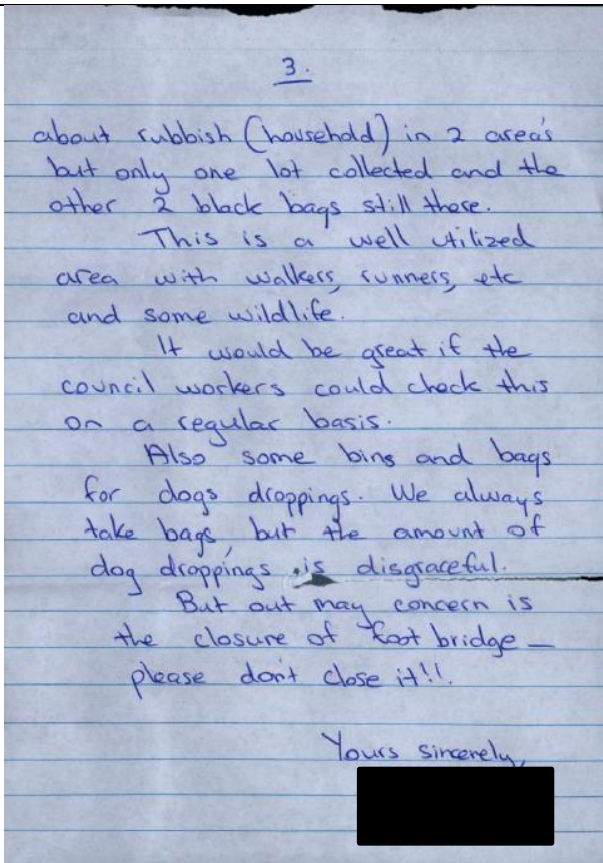 3.
about rubbish (household) in 2 area's
but only one lot collected and the
other 2 black bags still there.
This is a well utilized
area with walkers, runners, etc
and some wildlife.
It would be great if the
council workers could check this
on a regular basis.
Also some bins and bags
for dogs droppings. We always
take bags, but the amount of
dog droppings is disgraceful.
But out may concern is
the closure of foot bridge —
please don't close it!!.
Yours sincerely,